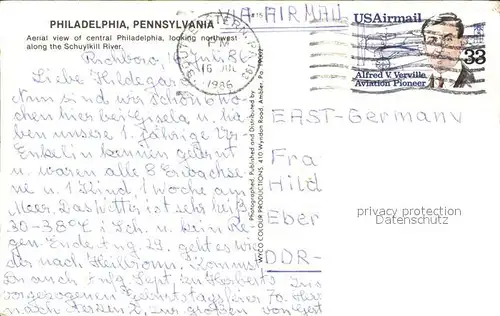 PHILADELPHIA, PENNSYLVANIA
Aerial view of central Philadelphia, looking northwest
along the Schuylkill River.
VIA AIRMAIL
USAirmail
33
Alfred V. Verville
Aviation Pioneer
PM
16 JUL
1986
Richboro, Juli 86
Liebe Hildegard
Nun sind wir schon Wo
chen hier bei Gisela u. ha
ben unsere 1. jährige Ur
Enkelin kennen gelernt
u. waren alle 8 Erwachse
ne u. 1 Kind 1 Woche am
Meer. Das Wetter ist sehr heiß
30-38° i. Sch. u. kein Re
gen. Ende Aug. geht es wie
der nach Heilbronn. Kommst
Du auch Anfg. Sept. zu Herberts
vorgezogenen Geburtstagsfeier 70.
nach zur großen von
Photographed, Published and Distributed by
WYCO COLOUR PRODUCTIONS, 410 Wyndon Road, Ambler, Pa. 19002
EAST-Germany
Fra
Hild
Eber
DDR-
privacy protection
DATENSCHUTZ